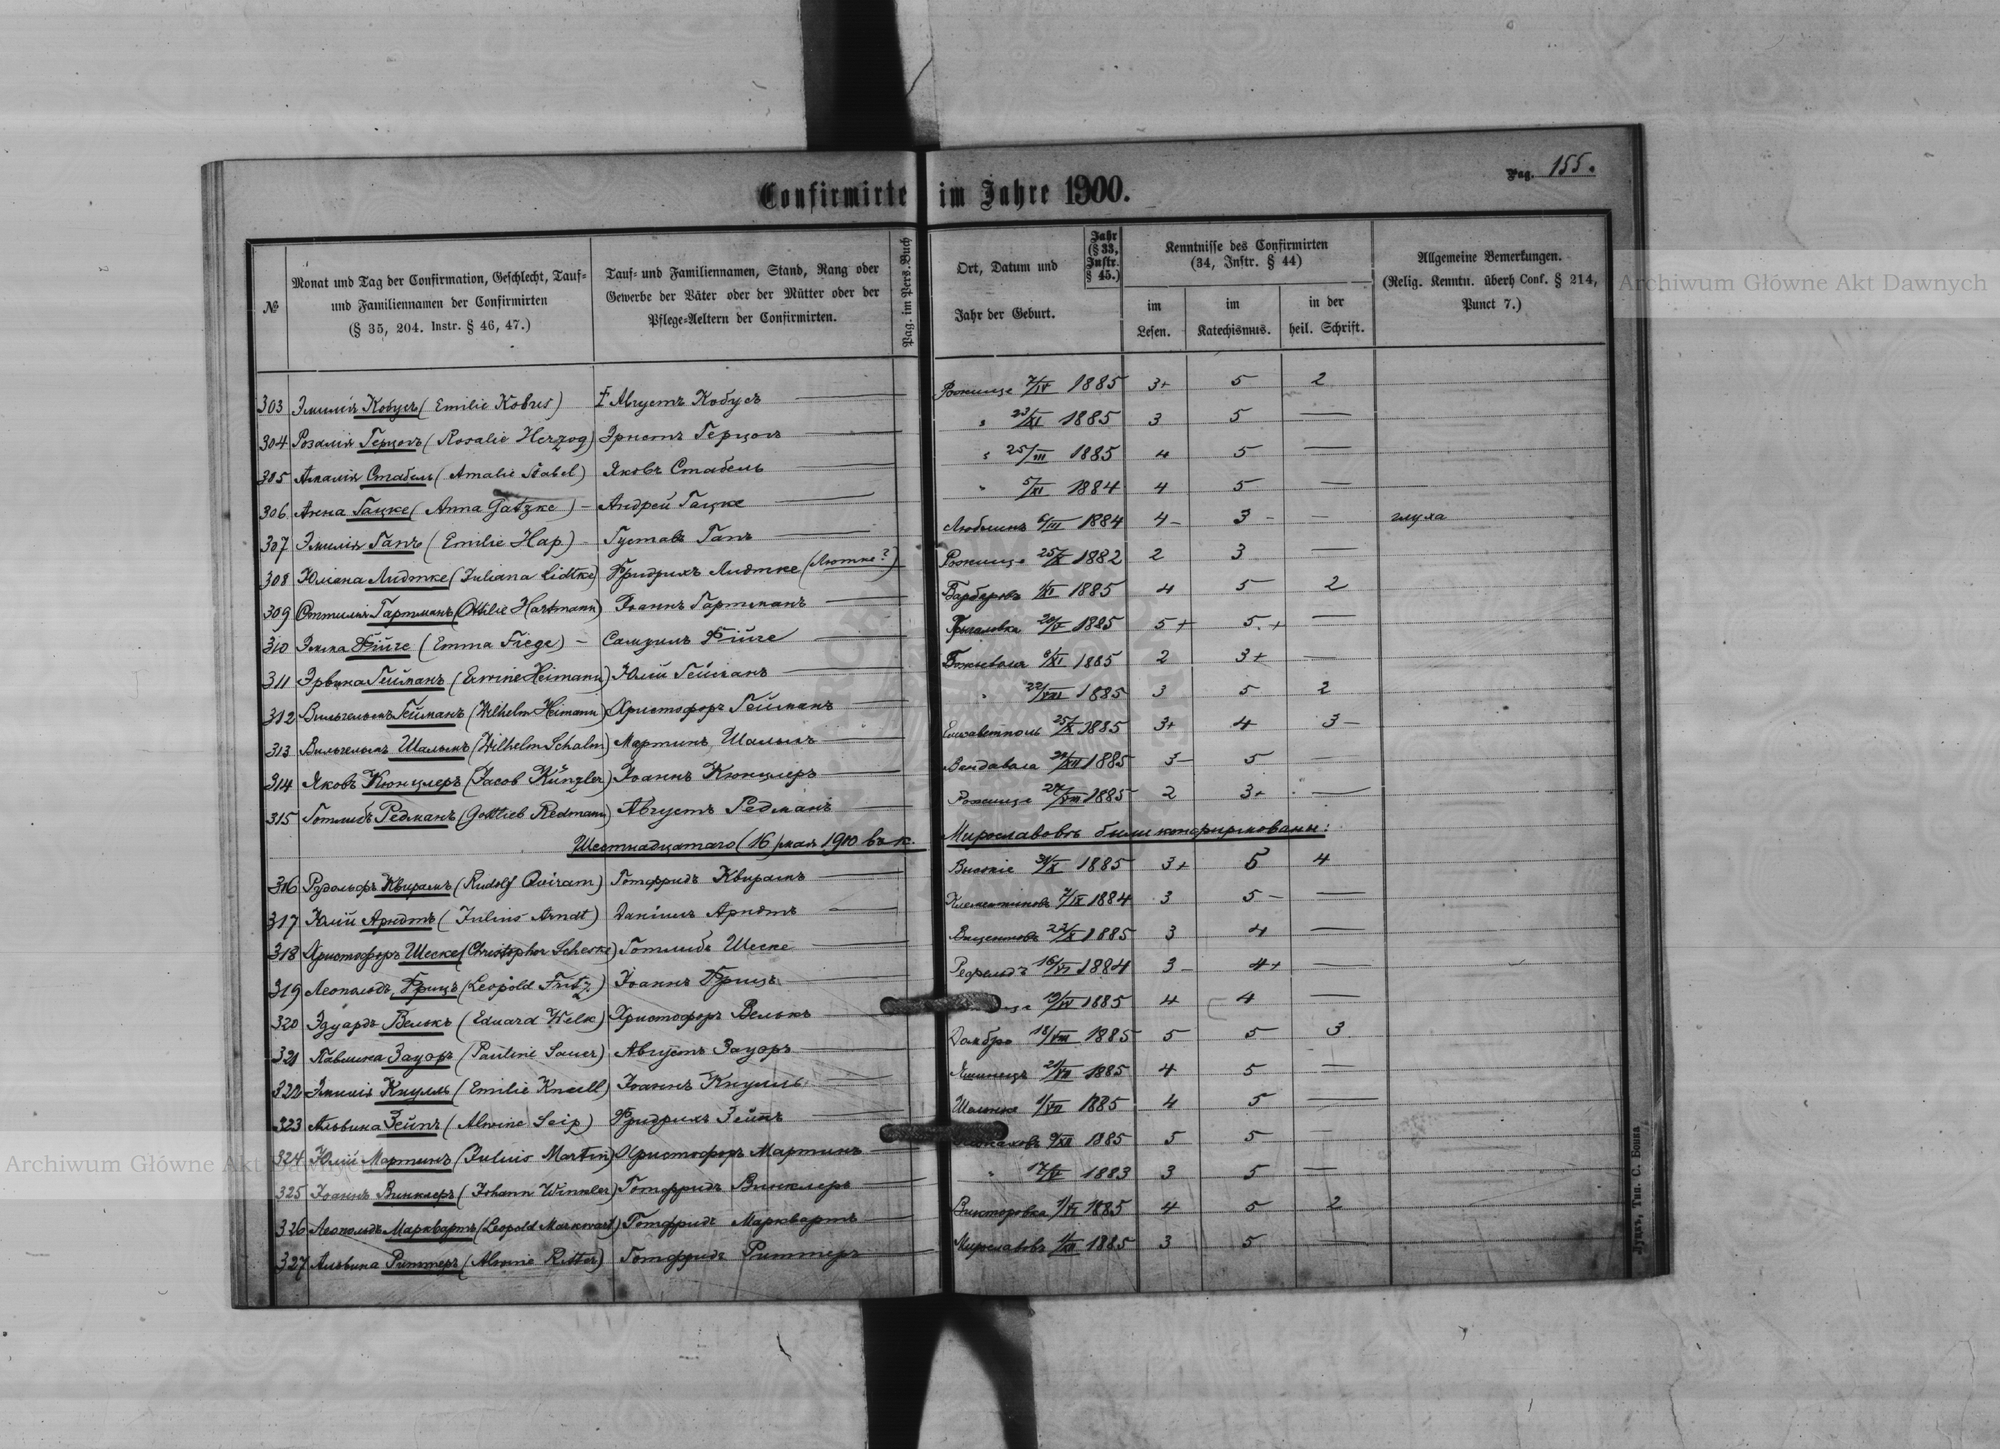 Pag. 155.
Confirmirte im Jahre 1900.
№
Monat und Tag der Confirmation, Geschlecht, Tauf-
und Familiennamen der Confirmirten
(§ 35, 204. Instr. § 46, 47.)
Tauf- und Familiennamen, Stand, Rang oder
Gewerbe der Väter oder der Mütter oder der
Pflege-Aeltern der Confirmirten.
Pag. im Pers. Buch
Ort, Datum und
Jahr der Geburt.
Jahr
(§ 33,
Instr.
§ 45.)
Kenntnisse des Confirmirten
(34, Instr. § 44)
im
Lesen.
im
Katechismus.
in der
heil. Schrift.
Allgemeine Bemerkungen.
(Relig. Kenntn. überh Conf. § 214,
Punct 7.)
303 Эмилія Кобусъ (Emilie Kobus) † Августъ Кобусъ Рожище 7/IV 1885 3+ 5 2
304 Розалія Герцогъ (Rosalie Herzog) Эрнстъ Герцогъ " 23/XI 1885 3 5 —
305 Амалія Стабель (Amalie Stabel) Яковъ Стабель " 25/III 1885 4 5 —
306 Анна Гацке (Anna Gatzke) – Андрей Гацке " 5/XI 1884 4 5 —
307 Эмилія Гапъ (Emilie Hap) – Густавъ Гапъ Люблинъ 6/III 1884 4– 3– — глуха
308 Юліана Лидтке (Juliana Lidtke) Фридрихъ Лидтке (Лютке?) Рожище 25/X 1882 2 3 —
309 Оттилія Гартманъ (Ottilie Hartmann) Іоаннъ Гартманъ 1885 4 5 2
310 Эмма Фійге (Emma Fiege) – Самуилъ Фійге 1885 5+ 5+ —
311 Эрвина Гейманъ (Erwine Heimann) Юлій Гейманъ 1885 2 3+ —
312 Вильгельмъ Гейманъ (Wilhelm Heimann) Христофоръ Гейманъ " 22/VIII 1885 3 5 2
313 Вильгельмъ Шальмъ (Wilhelm Schalm) Мартинъ Шальмъ Елисаветполь 25/X 1885 3+ 4 3–
314 Яковъ Кюнцлеръ (Jacob Künzler) Іоаннъ Кюнцлеръ 1885 3– 5 —
315 Готлибъ Редманъ (Gottlieb Redmann) Августъ Редманъ Рожище 1885 2 3+ —
Шестнадцатаго (16) мая 1900 въ к. Мирославовъ были конфирмованы:
316 Рудольфъ Квирамъ (Rudolf Quiram) Готфридъ Квирамъ 1885 3+ 5 4
317 Юлій Арндтъ (Julius Arndt) Даніилъ Арндтъ 1884 3 5– —
318 Христофоръ Шеске (Christophor Scheske) Готлибъ Шеске 1885 3 4 —
319 Леопольдъ Фрицъ (Leopold Fritz) Іоаннъ Фрицъ 16/VI 1884 3– 4+ —
320 Эдуардъ Велькъ (Eduard Welk) Христофоръ Велькъ 19/IV 1885 4 4 —
321 Павлина Зауэръ (Pauline Sauer) Августъ Зауэръ Домбро 18/VIII 1885 5 5 3
322 Эмилія Кнулль (Emilie Knull) Іоаннъ Кнулль 1885 4 5 —
323 Альвина Зейпъ (Alwine Seip) Фридрихъ Зейпъ 1885 4 5 —
324 Юлій Мартинъ (Julius Martin) Христофоръ Мартинъ 1885 5 5 —
325 Іоаннъ Винклеръ (Johann Winkler) Готфридъ Винклеръ " 17/V 1883 3 5 —
326 Леопольдъ Марквартъ (Leopold Markwart) Готфридъ Марквартъ Викторовка 1/VI 1885 4 5 2
327 Альвина Риттеръ (Alwine Ritter) Готфридъ Риттеръ Мирославовъ 1885 3 5 —
Луцкъ, Тип. С. Бонка
Archiwum Główne Akt Dawnych
Archiwum Główne Akt